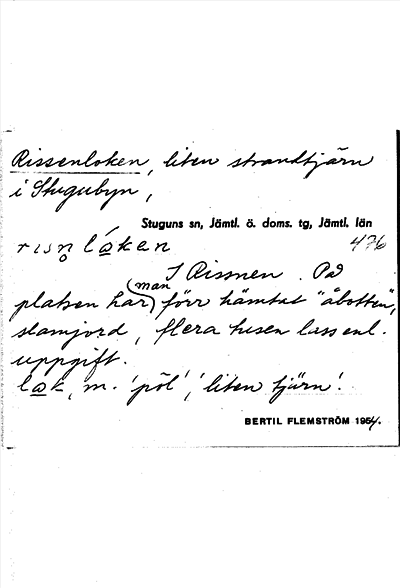 Rissenloken, liten strandtjärn
i Stugubyn,
Stuguns sn, Jämtl. ö. doms. tg, Jämtl. län
rısn̥ lá̱kan 476
I Rissnen. På
platsen har (man) förr hämtat "åbotten",
slamjord, flera tusen lass enl.
uppgift.
la̱k, m. 'pöl', 'liten tjärn'.
BERTIL FLEMSTRÖM 1954.